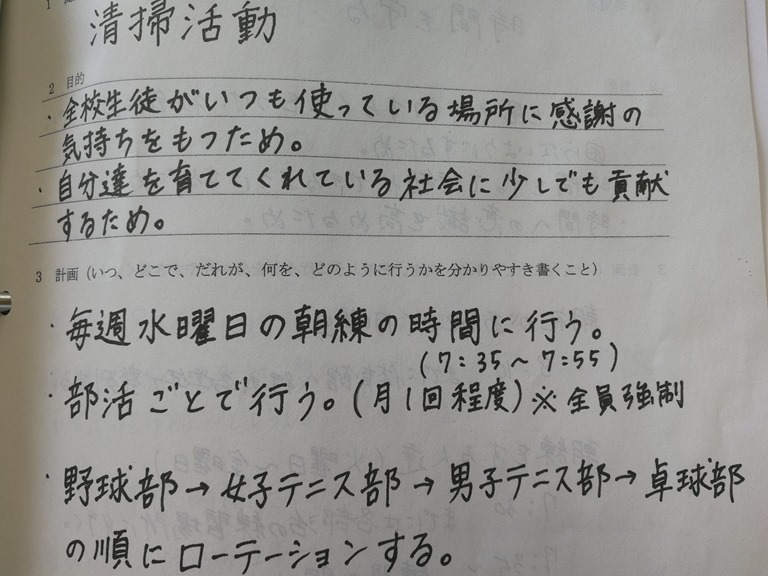 清掃活動
2 目的
・全校生徒がいつも使っている場所に感謝の
気持ちをもつため。
・自分達を育ててくれている社会に少しでも貢献
するため。
3 計画(いつ、どこで、だれが、何を、どのように行うかを分かりやすき書くこと)
・毎週水曜日の朝練の時間に行う。
(7:35~7:55)
・部活ごとで行う。(月1回程度)※全員強制
・野球部→女子テニス部→男子テニス部→卓球部
の順にローテーションする。